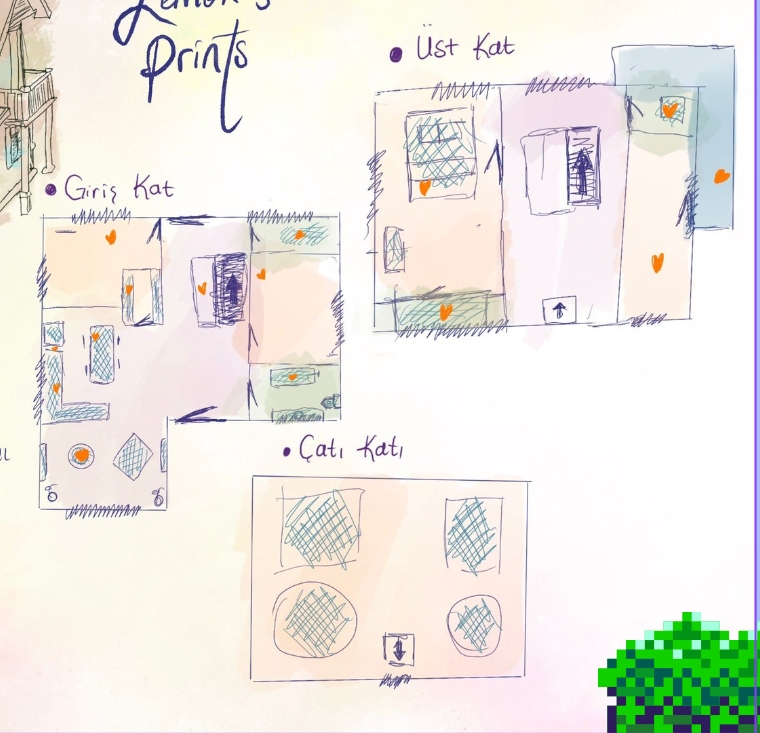 Lemon's
Prints
• Üst Kat
• Giriş Kat
• Çatı Katı